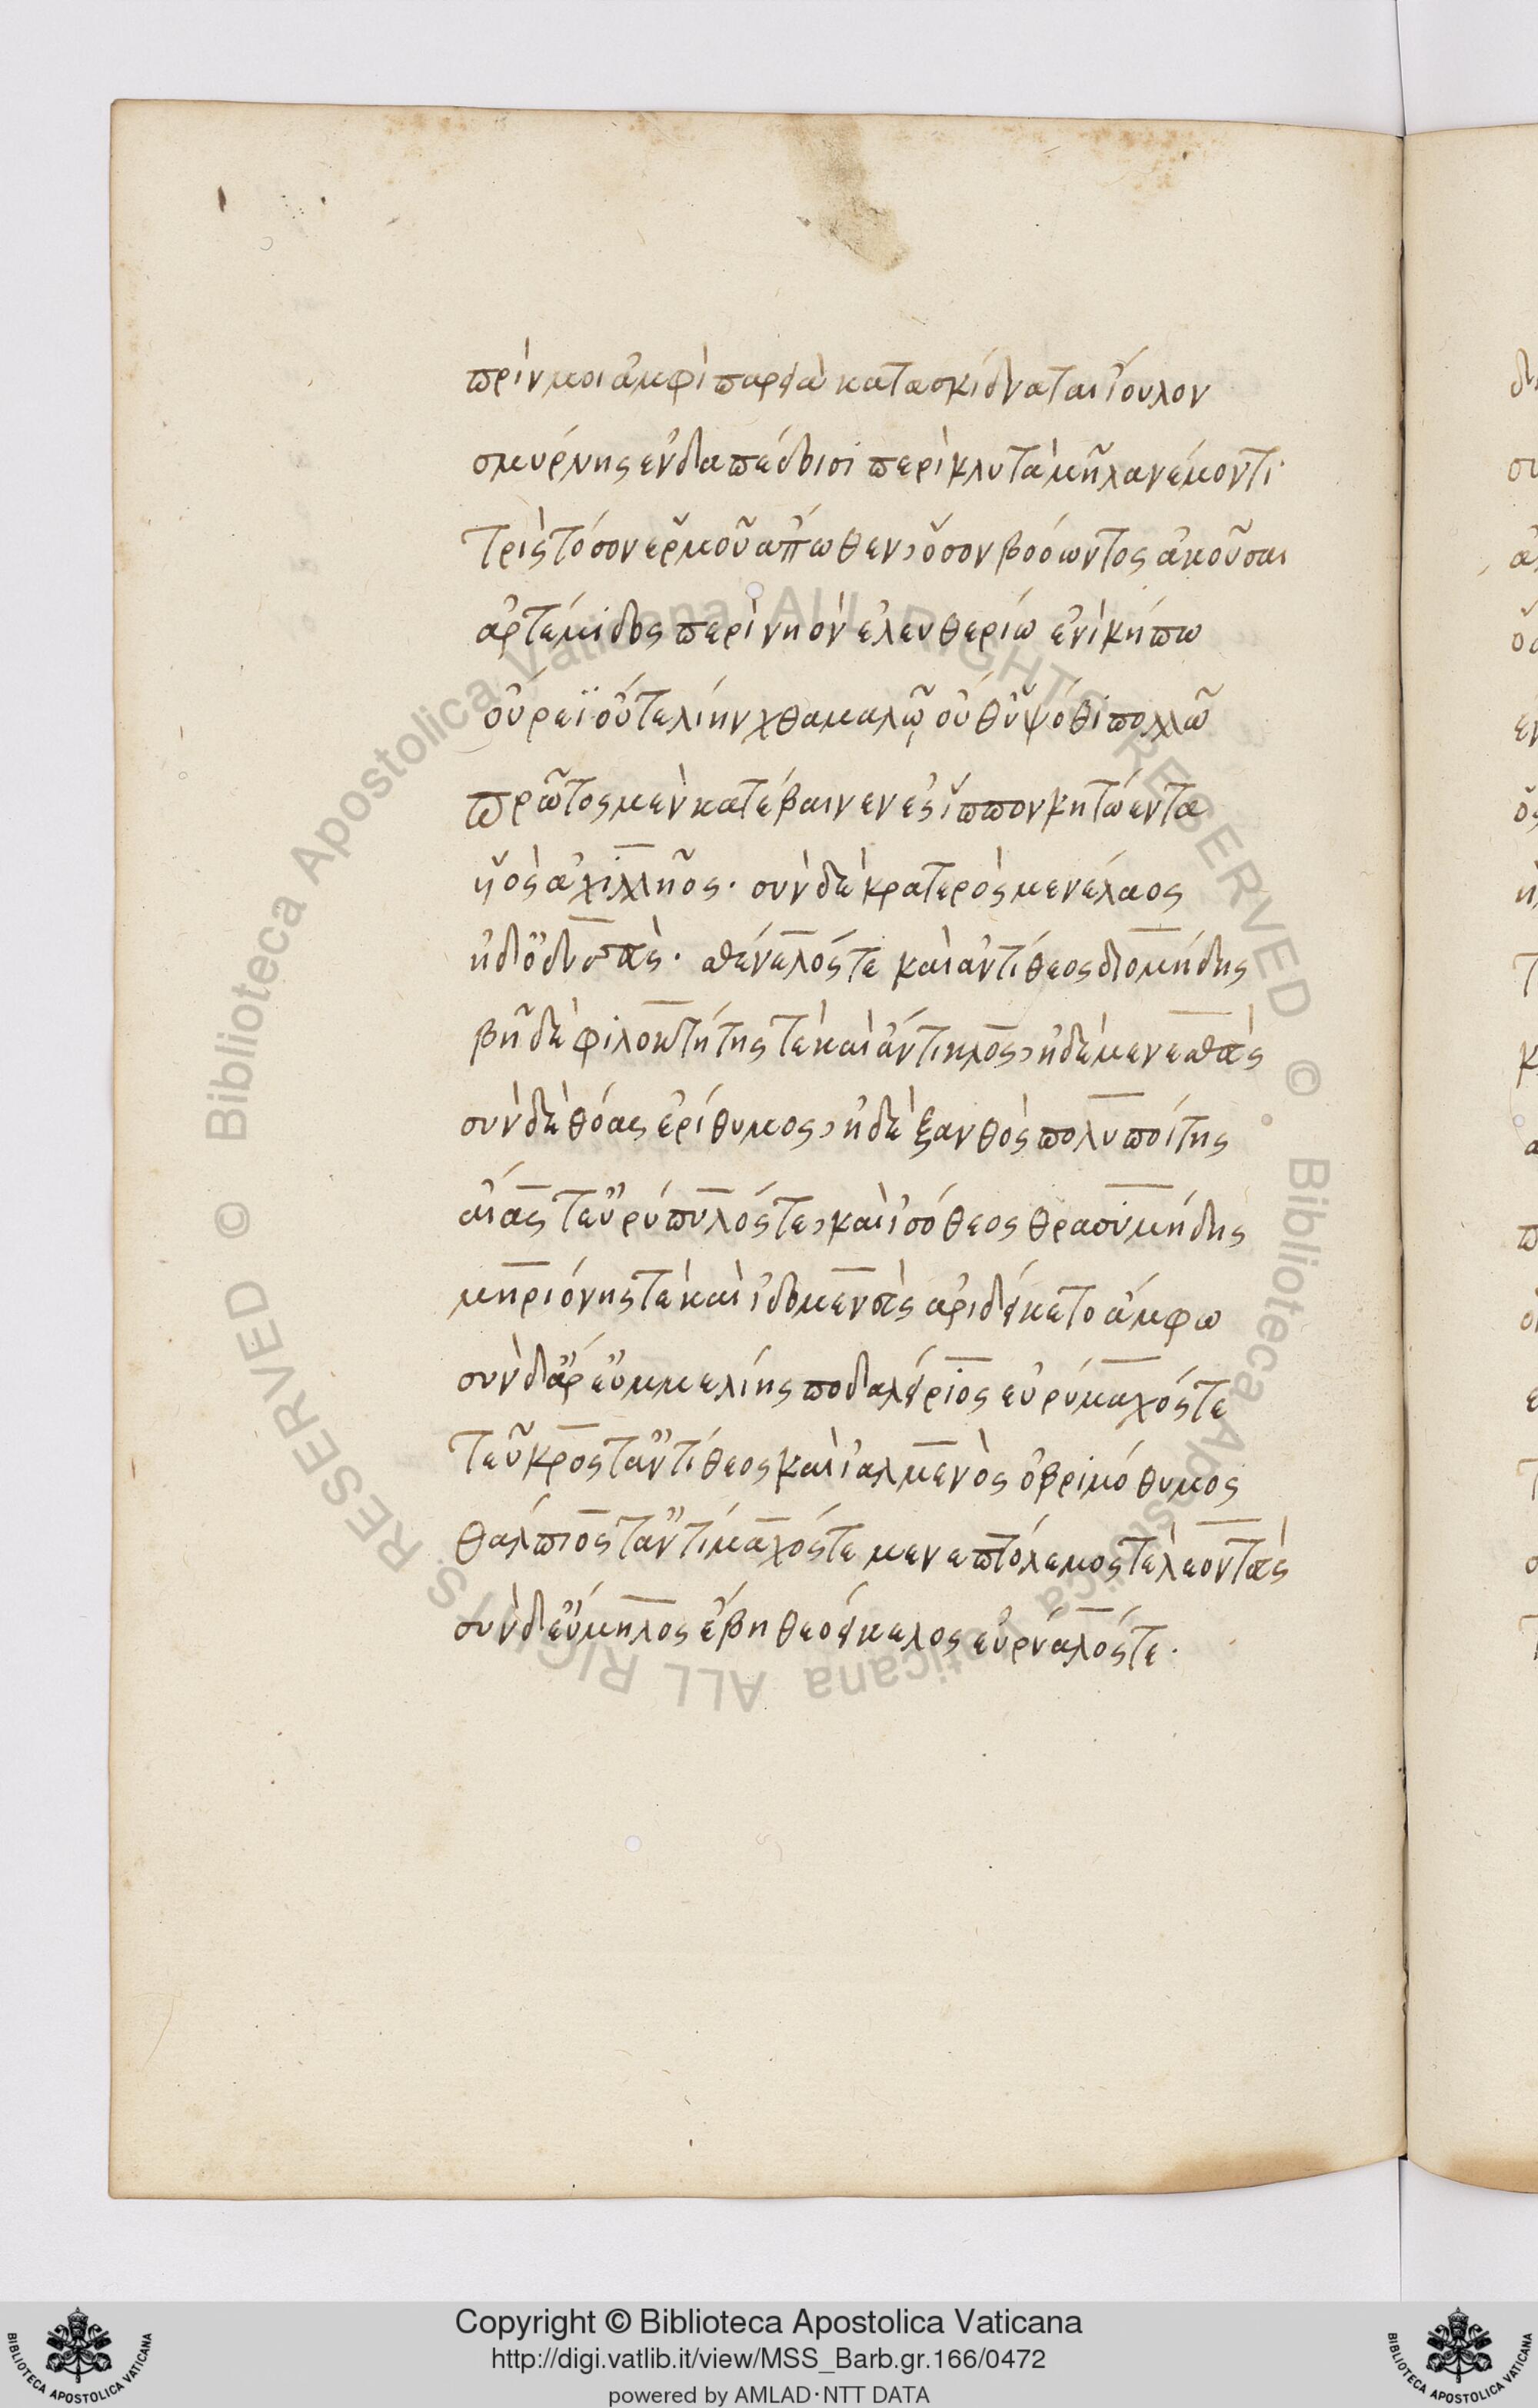 πρίν μοι ἀμφὶ παρειὰ κατασκίδναται ἴουλον
σμύρνης ἐν δαπέδοισι περὶ κλυτὰ μῆλα νέμοντι·
τρὶς τόσον ἑρμοῦ ἄπωθεν, ὅσον βοόωντος ἀκοῦσαι
ἀρτέμιδος περὶ νηὸν ἐλευθερίω ἐνὶ κήπω
οὔρεϊ οὔτε λίην χθαμαλῷ οὔθ' ὑψόθι πολλῶ
πρῶτος μὲν κατέβαινεν ἐς ἵππον κητώεντα
υἱὸς ἀχιλλῆος· σὺν δὲ κρατερὸς μενέλαος
ἠδ' ὀδυσσεὺς· σθένελός τε καὶ ἀντίθεος διομήδης
βῆ δὲ φιλοκτήτης τὲ καὶ ἄντικλος, ἠδὲ μενεσθεὺς
σὺν δὲ θόας ἐρίθυμος, ἠδὲ ξανθὸς πολυποίτης
αἴας τ' εὐρύπυλός τε, καὶ ἰσόθεος θρασυμήδης
μηριόνης τὲ καὶ ἰδομενεὺς ἀριδείκετο ἄμφω
σὺν δ' ἄρ' ἐϋμμελίης ποδαλείριος εὐρύμαχός τε
τεῦκρός τ' ἀντίθεος καὶ ἰάλμενὸς ὀβριμόθυμος
θάλπιος τ' ἀντίμαχός τε μενεπτόλεμος τὲ λεοντεὺς
σὺν δ' εὔμηλος ἔβη θεοείκελος εὐρύαλός τε.
Copyright © Biblioteca Apostolica Vaticana
http://digi.vatlib.it/view/MSS_Barb.gr.166/0472
powered by AMLAD·NTT DATA